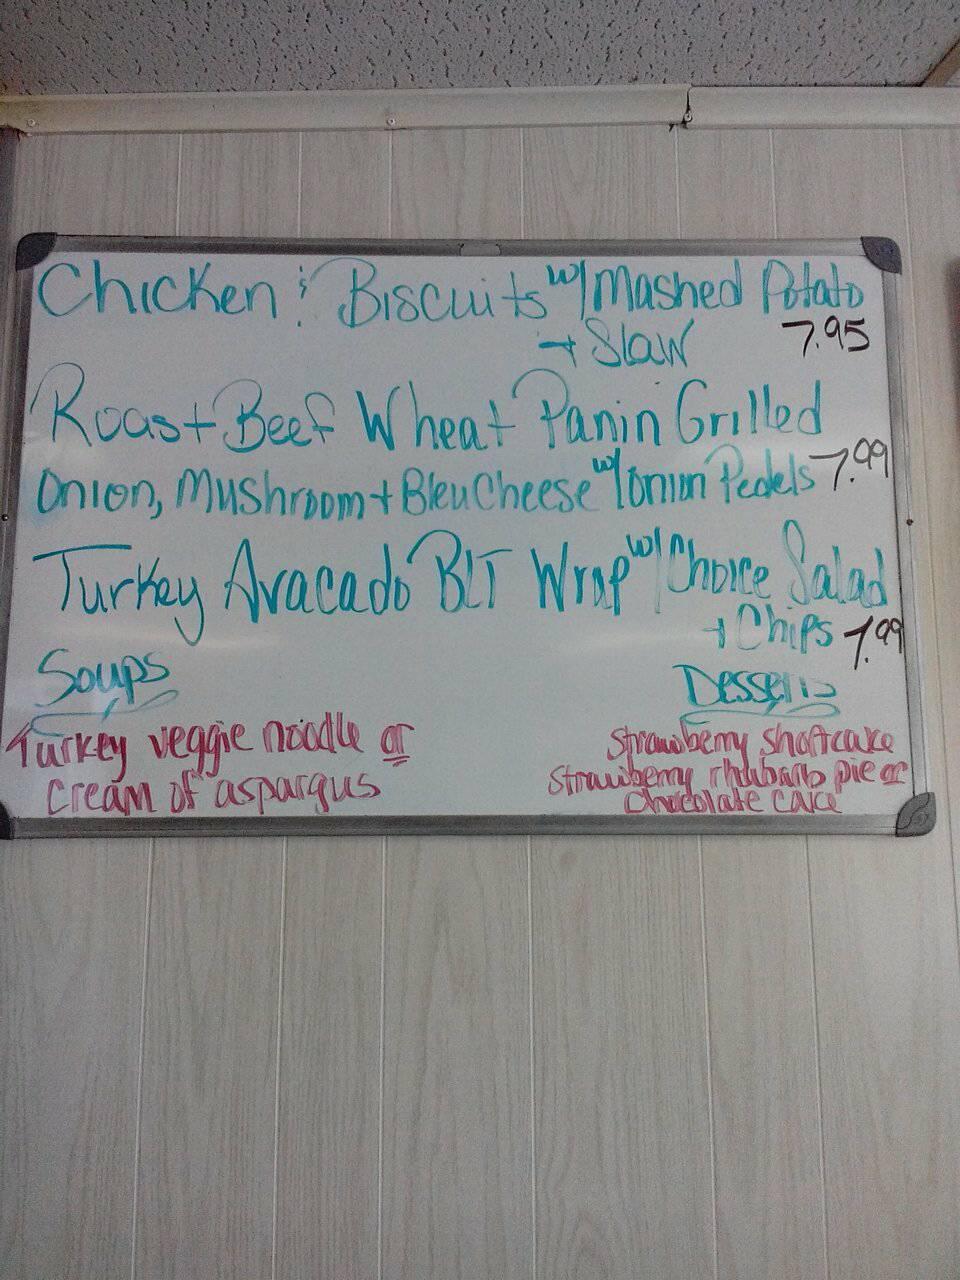 Chicken & Biscuits w/ Mashed Potato
+ Slaw 7.95
Roast Beef Wheat Panin Grilled
Onion, Mushroom + Bleu Cheese w/ Onion Pedels 7.99
Turkey Avacado BLT Wrap w/ Choice Salad
+ Chips 7.99
Soups
Desserts
Turkey veggie noodle or
cream of aspargus
Strawberry shortcake
Strawberry rhubarb pie or
chocolate cake